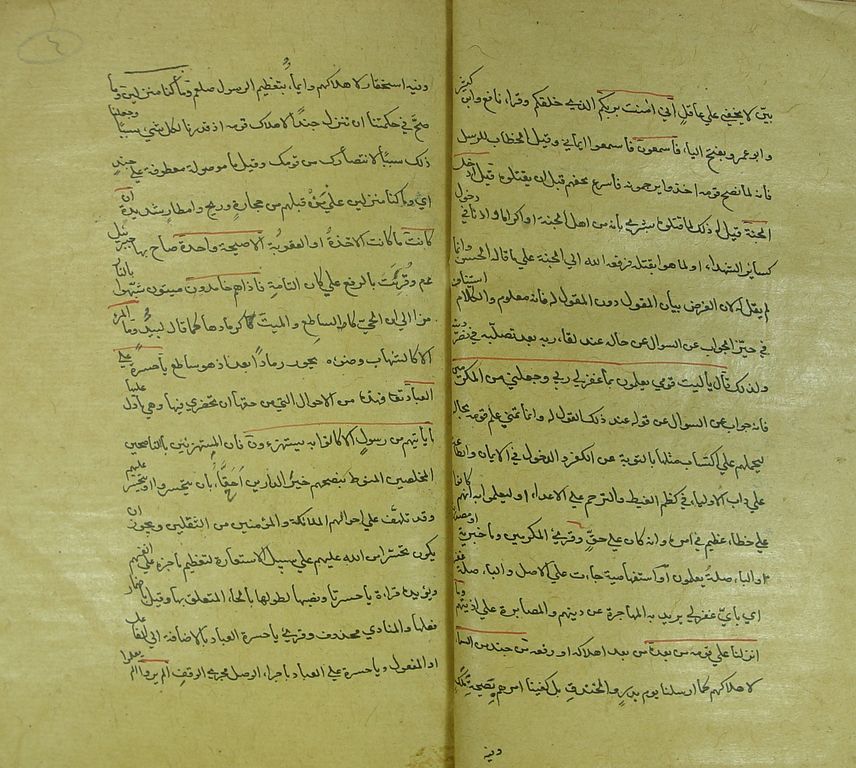 بيّن لا يخفى على عاقل إني آمنت بربكم الذي خلقكم وقرأ نافع وابن كثير
وابو عمرو بفتح الياء فاسمعون فاسمعوا ايماني وقيل الخطاب للرسل
فانه لما نصح قومه اخذوا يرجمونه فاسرع نحوهم قبل ان يقتلوه قيل ادخل
الجنة قيل له ذلك لما قتلوه بشرى بانه من اهل الجنة او اكراما واذنا في دخول
كسائر الشهداء او لما هموا بقتله فرفعه الله الى الجنة على ما قاله الحسن وانما
لم يقل له لان الغرض بيان المقول دون المقول له فانه معلوم والكلام استيناف
في حيّز الجواب عن السؤال عن حاله عند لقاء ربه بعد تصلّبه في نصر دينه
ولذلك قال يا ليت قومي يعلمون بما غفر لي ربي وجعلني من المكرمين
فانه جواب عن السؤال عن قوله عند ذلك القول له وانما تمنى علم قومه بحاله
ليحملهم على اكتساب مثلها بالتوبة عن الكفر والدخول في الايمان والطاعة
على داب الاولياء في كظم الغيظ والترحم على الاعداء او ليعلموا انهم كانوا
على خطاء عظيم في امره وانه كان على حقّ وقرئ المكرمين وما خبرية او مصدرية
والباء صلة يعلمون او استفهامية جاءت على الاصل والباء صلة غفر
اي باي غفر لي يريد به المهاجرة عن دينهم والمصابرة على اذيتهم وما
انزلنا على قومه من بعده من بعد اهلاكه او رفعه من جند من السماء
لاهلاكهم كما ارسلنا يوم بدر والخندق بل كفينا امرهم بصيحة ملك
وفيه
وفيه استحقار لاهلاكهم وايماء بتعظيم الرسول صلعم وما كنا منزلين وما
صحّ في حكمتنا ان ننزل جندًا لاهلاك قومه اذ قدرنا لكل شيء سببًا وجعلنا
ذلك سببًا لانتصارك من قومك وقيل ما موصولة معطوفة على جند
اي وما كنا منزلين على من قبلهم من حجارة وريح وامطار شديدة ان
كانت ما كانت الاخذة او العقوبة الا صيحة واحدة صاح بها جبرئيل
عم وقرئت بالرفع على كان التامة فاذا هم خامدون ميتون شبّهوا بالنار
رمزا الى ان الحيّ كالنار الساطع والميت كرمادها كما قال لبيد وما المرء
الا كالشهاب وضوئه يحور رمادًا بعد اذ هو ساطع يا حسرة على
العباد تعالي فهذه من الاحوال التي من حقها ان تحضري فيها وهي ما دل عليها
ما ياتيهم من رسول الا كانوا به يستهزءون فان المستهزئين بالناصحين
المخلصين المنوط بنصحهم خير الدارين احقّاء بان يتحسروا او يتحسر عليهم
وقد تلهّف على احوالهم الملائكة والمؤمنين من الثقلين ويجوز ان
يكون تحسّرا من الله عليهم على سبيل الاستعارة لتعظيم ما جنوه على انفسهم
ويؤيده قراءة يا حسرتا ونصبها لطولها بالجار المتعلق بها وقيل باضمار
فعلها والمنادى محذوف وقرئ يا حسرة العباد بالاضافة الى الفاعل
او المفعول ويا حسرة على العباد باجراء الوصل مجرى الوقف الم يروا الم يعلموا